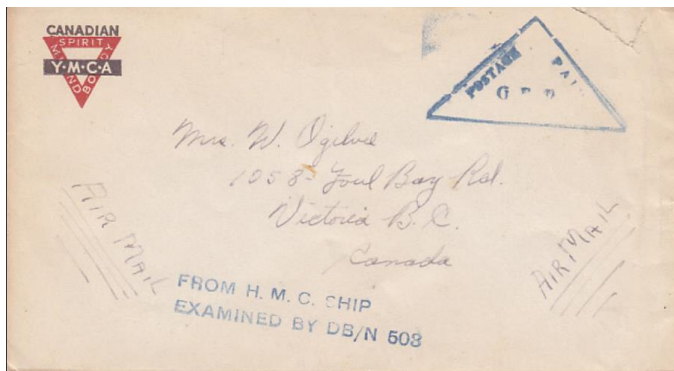 CANADIAN
SPIRIT
MIND
BODY
Y·M·C·A
POSTAGE PAI
G
Mrs. W. Ogilvie
1058 Foul Bay Rd.
Victoria B.C.
Canada
AIR MAIL
AIR MAIL
FROM H. M. C. SHIP
EXAMINED BY DB/N 508